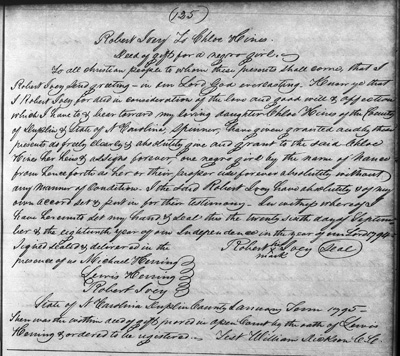 (125)
Robert Ivey To Chloe Hines
Deed of gift for a negro girl.
To all christian people to whom these presents shall come, that I
Robert Ivey send greeting - in our Lord God everlasting. Know ye that
I Robert Ivey for and in consideration of the love and good will & affection
which I have to & bear toward my loving daughter Chloe Hines of the County
of Duplin & State of N Carolina, Spinner, have given granted and by these
presents do freely clearly & absolutely give and grant to the said Chloe
Hines her heirs & assigns forever, one negro girl by the name of
from henceforth as her or their proper use forever absolutely without
any manner of Condition. I the said Robert Ivey have absolutely & of my
own accord set & put in for their testimony. In witness whereof I
have hereunto set my hand & seal this the twenty sixth day of Septem-
ber & the eighteenth year of our Independence in the year of our Lord
Signed sealed & delivered in the Robert Ivey Seal
presence of us Michael Herring mark
Lewis Herring
Robert Ivey
State of N Carolina Duplin County January Term 1795.
Then was the within deed of gift proved in open Court by the oath of Lewis
Herring & ordered to be registered. Test William Dickson C.C.